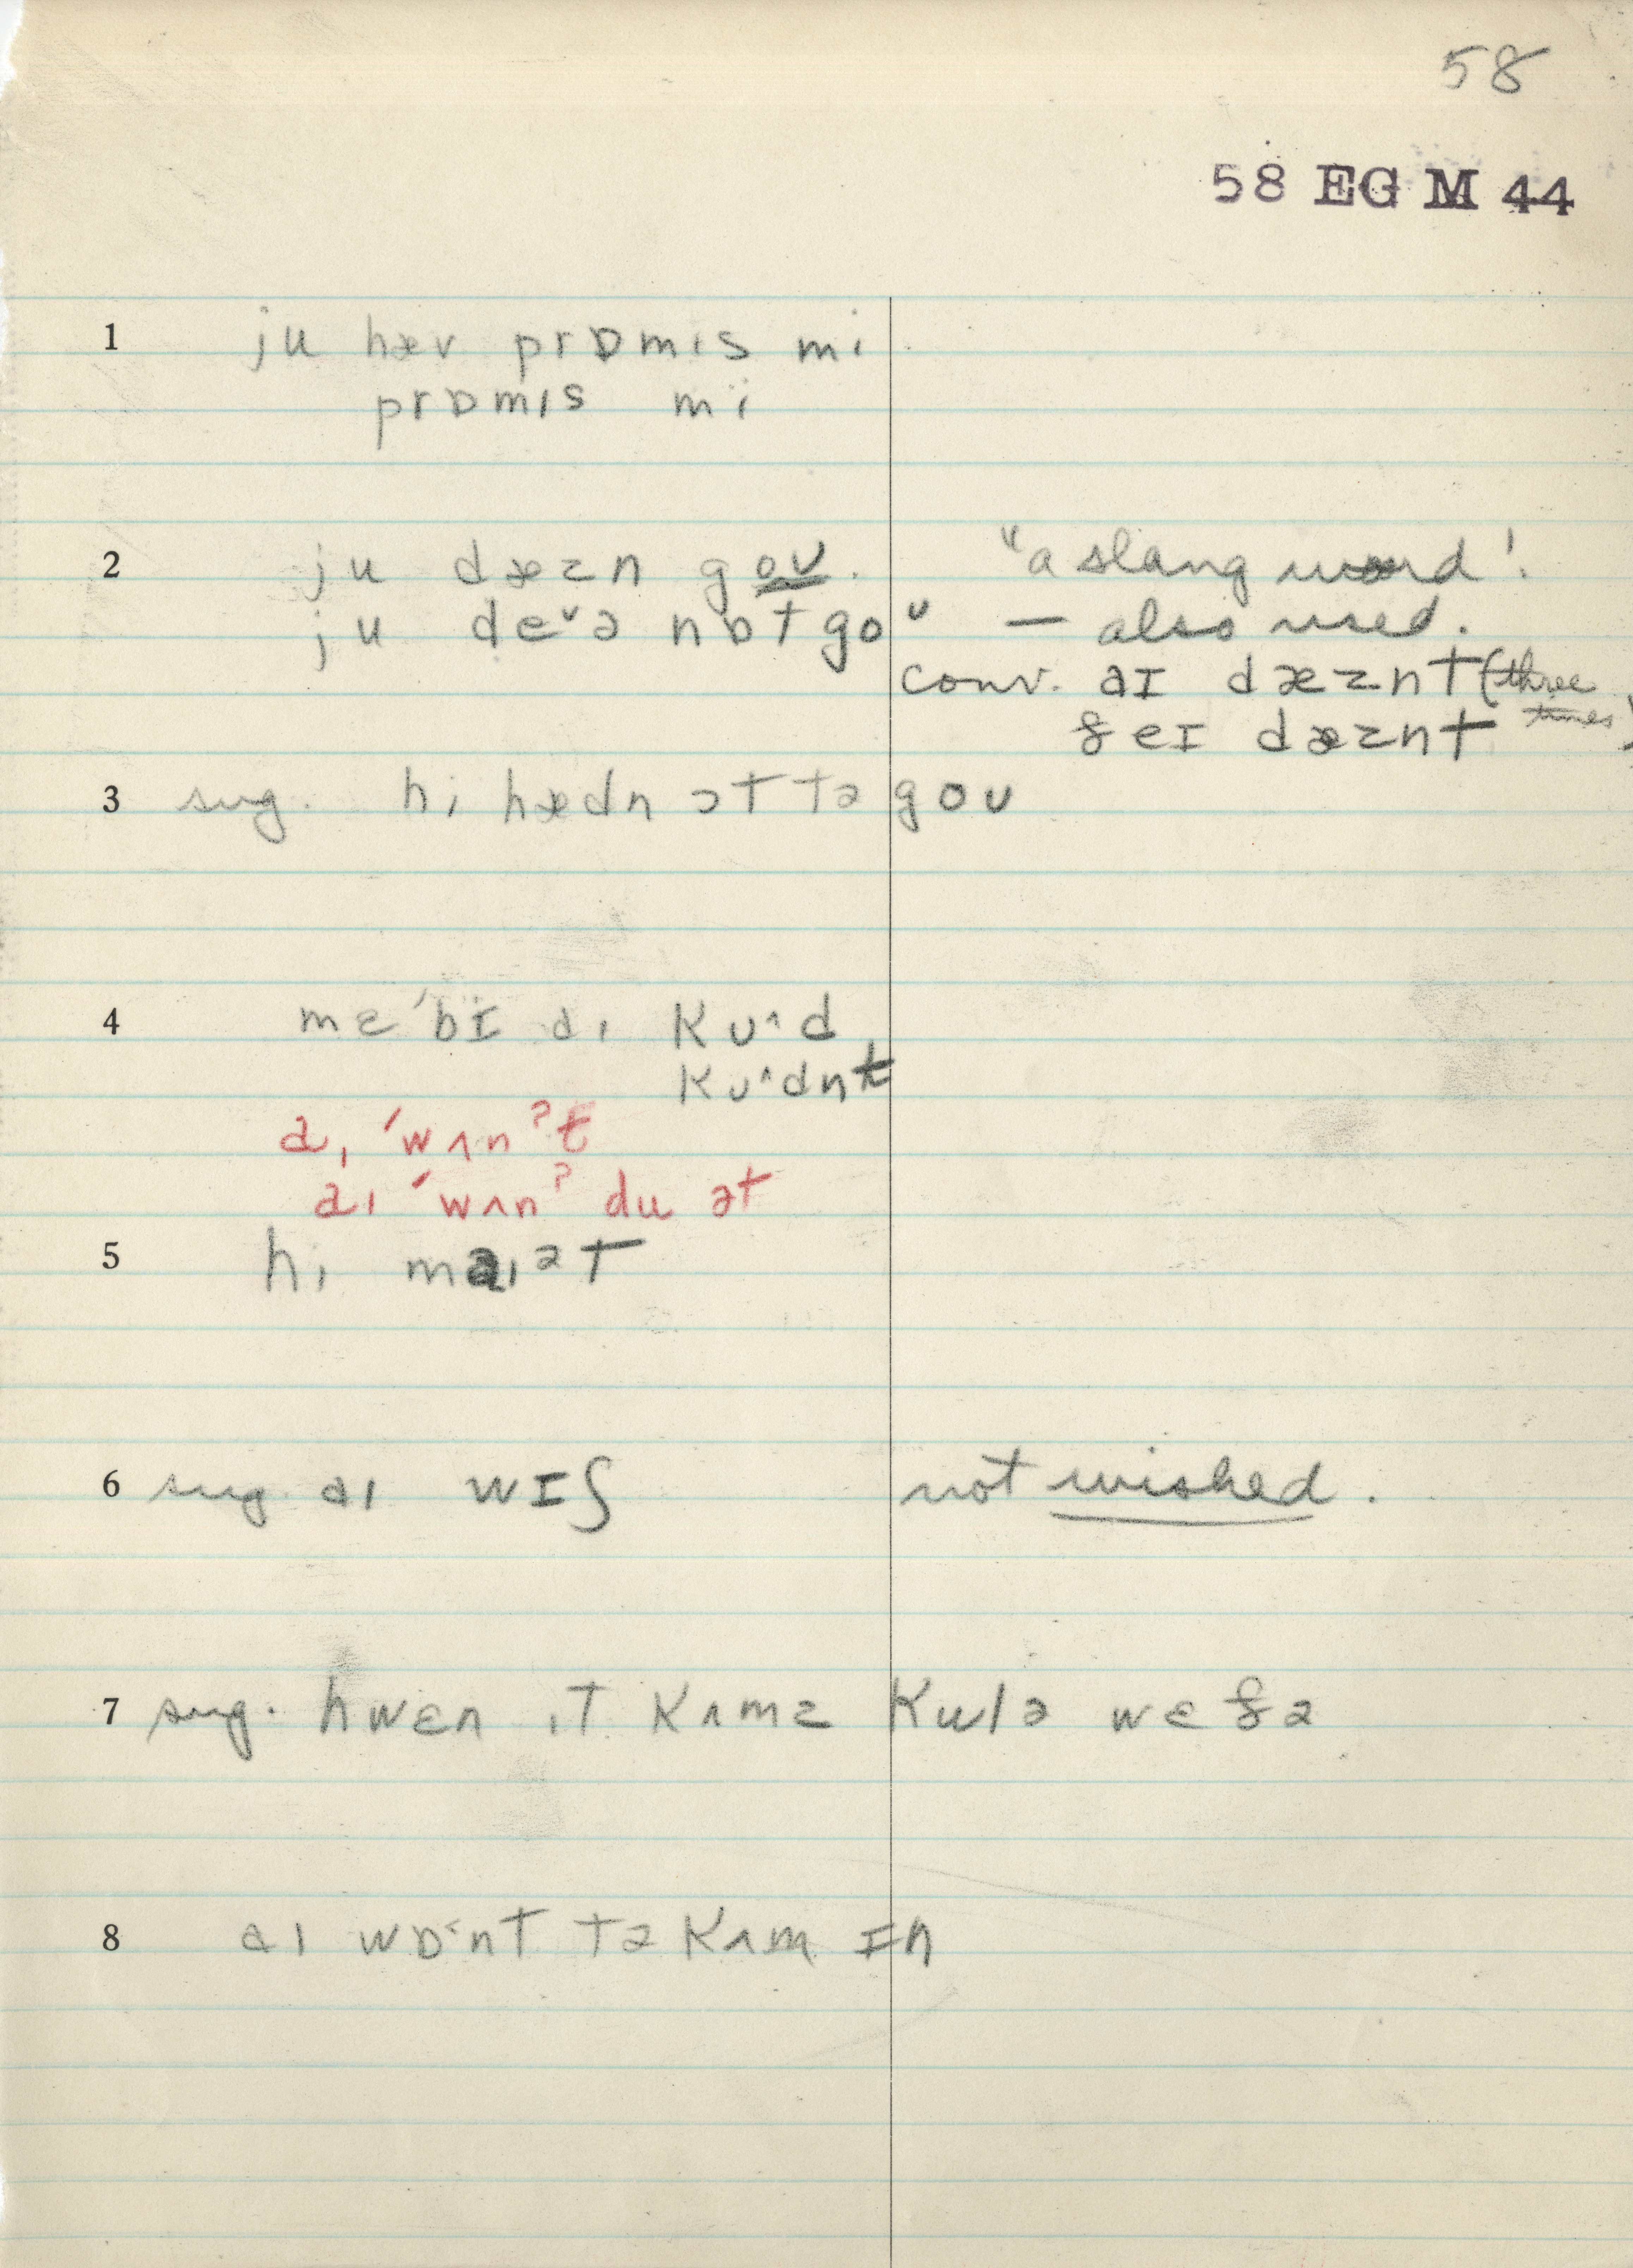 58
58 EG M 44
1 ju hæv prɒmɪs mi
prɒmɪs mï
2 ju dæzn goʊ. "a slang word!
ju deᵛə nɒt goᵘ — also used.
conv. aɪ dæznt (three times)
ðeɪ dæznt
3 sug. hi hædn ɔt tə goʊ
4 mɛ'bɪ̈ aɪ kʊ^d
kʊ^dnt
aɪ 'wʌnʔt
aɪ 'wʌnʔ du ət
5 hi maɪət
6 sug. aɪ wɪʃ not wished.
7 sug. hwɛn ɪt kʌmz kulə wɛðə
8 aɪ wɒ˂nt tə kʌm ɪn